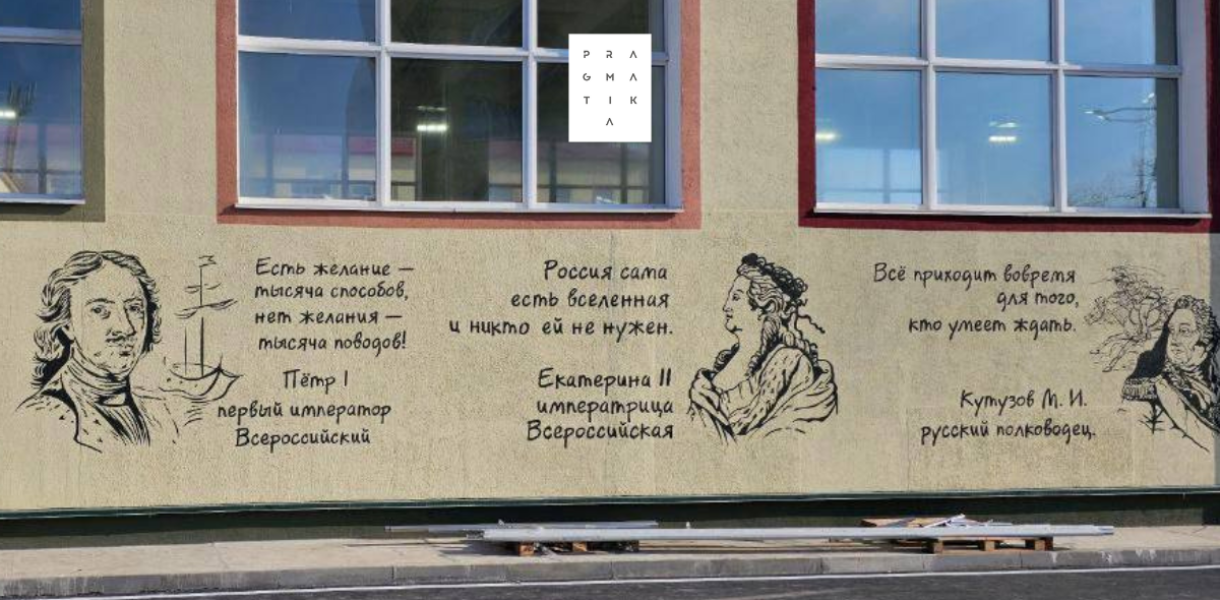 PRA
GMA
TIK
A
Есть желание —
тысяча способов,
нет желания —
тысяча поводов!
Пётр I
первый император
Всероссийский
Россия сама
есть вселенная
и никто ей не нужен.
Екатерина II
императрица
Всероссийская
Всё приходит вовремя
для того,
кто умеет ждать.
Кутузов М. И.
русский полководец.